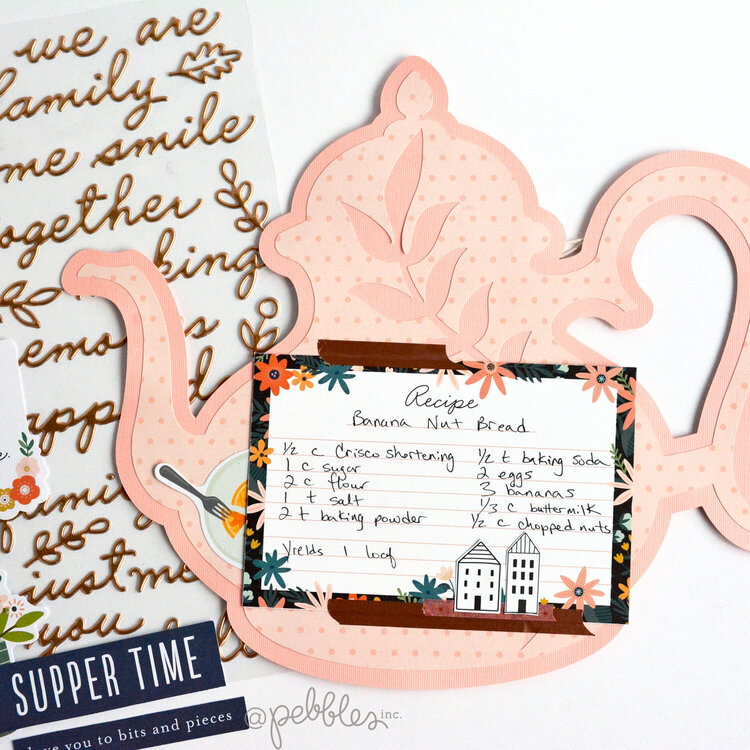 we are
family
me smile
together
king
memories
happ
family
just me
you
Recipe
Banana Nut Bread
½ c Crisco shortening
1 c sugar
2 c flour
1 t salt
2 t baking powder
Yields 1 loaf
½ t baking soda
2 eggs
3 bananas
⅓ c buttermilk
½ c chopped nuts
SUPPER TIME
love you to bits and pieces
@pebbles inc.